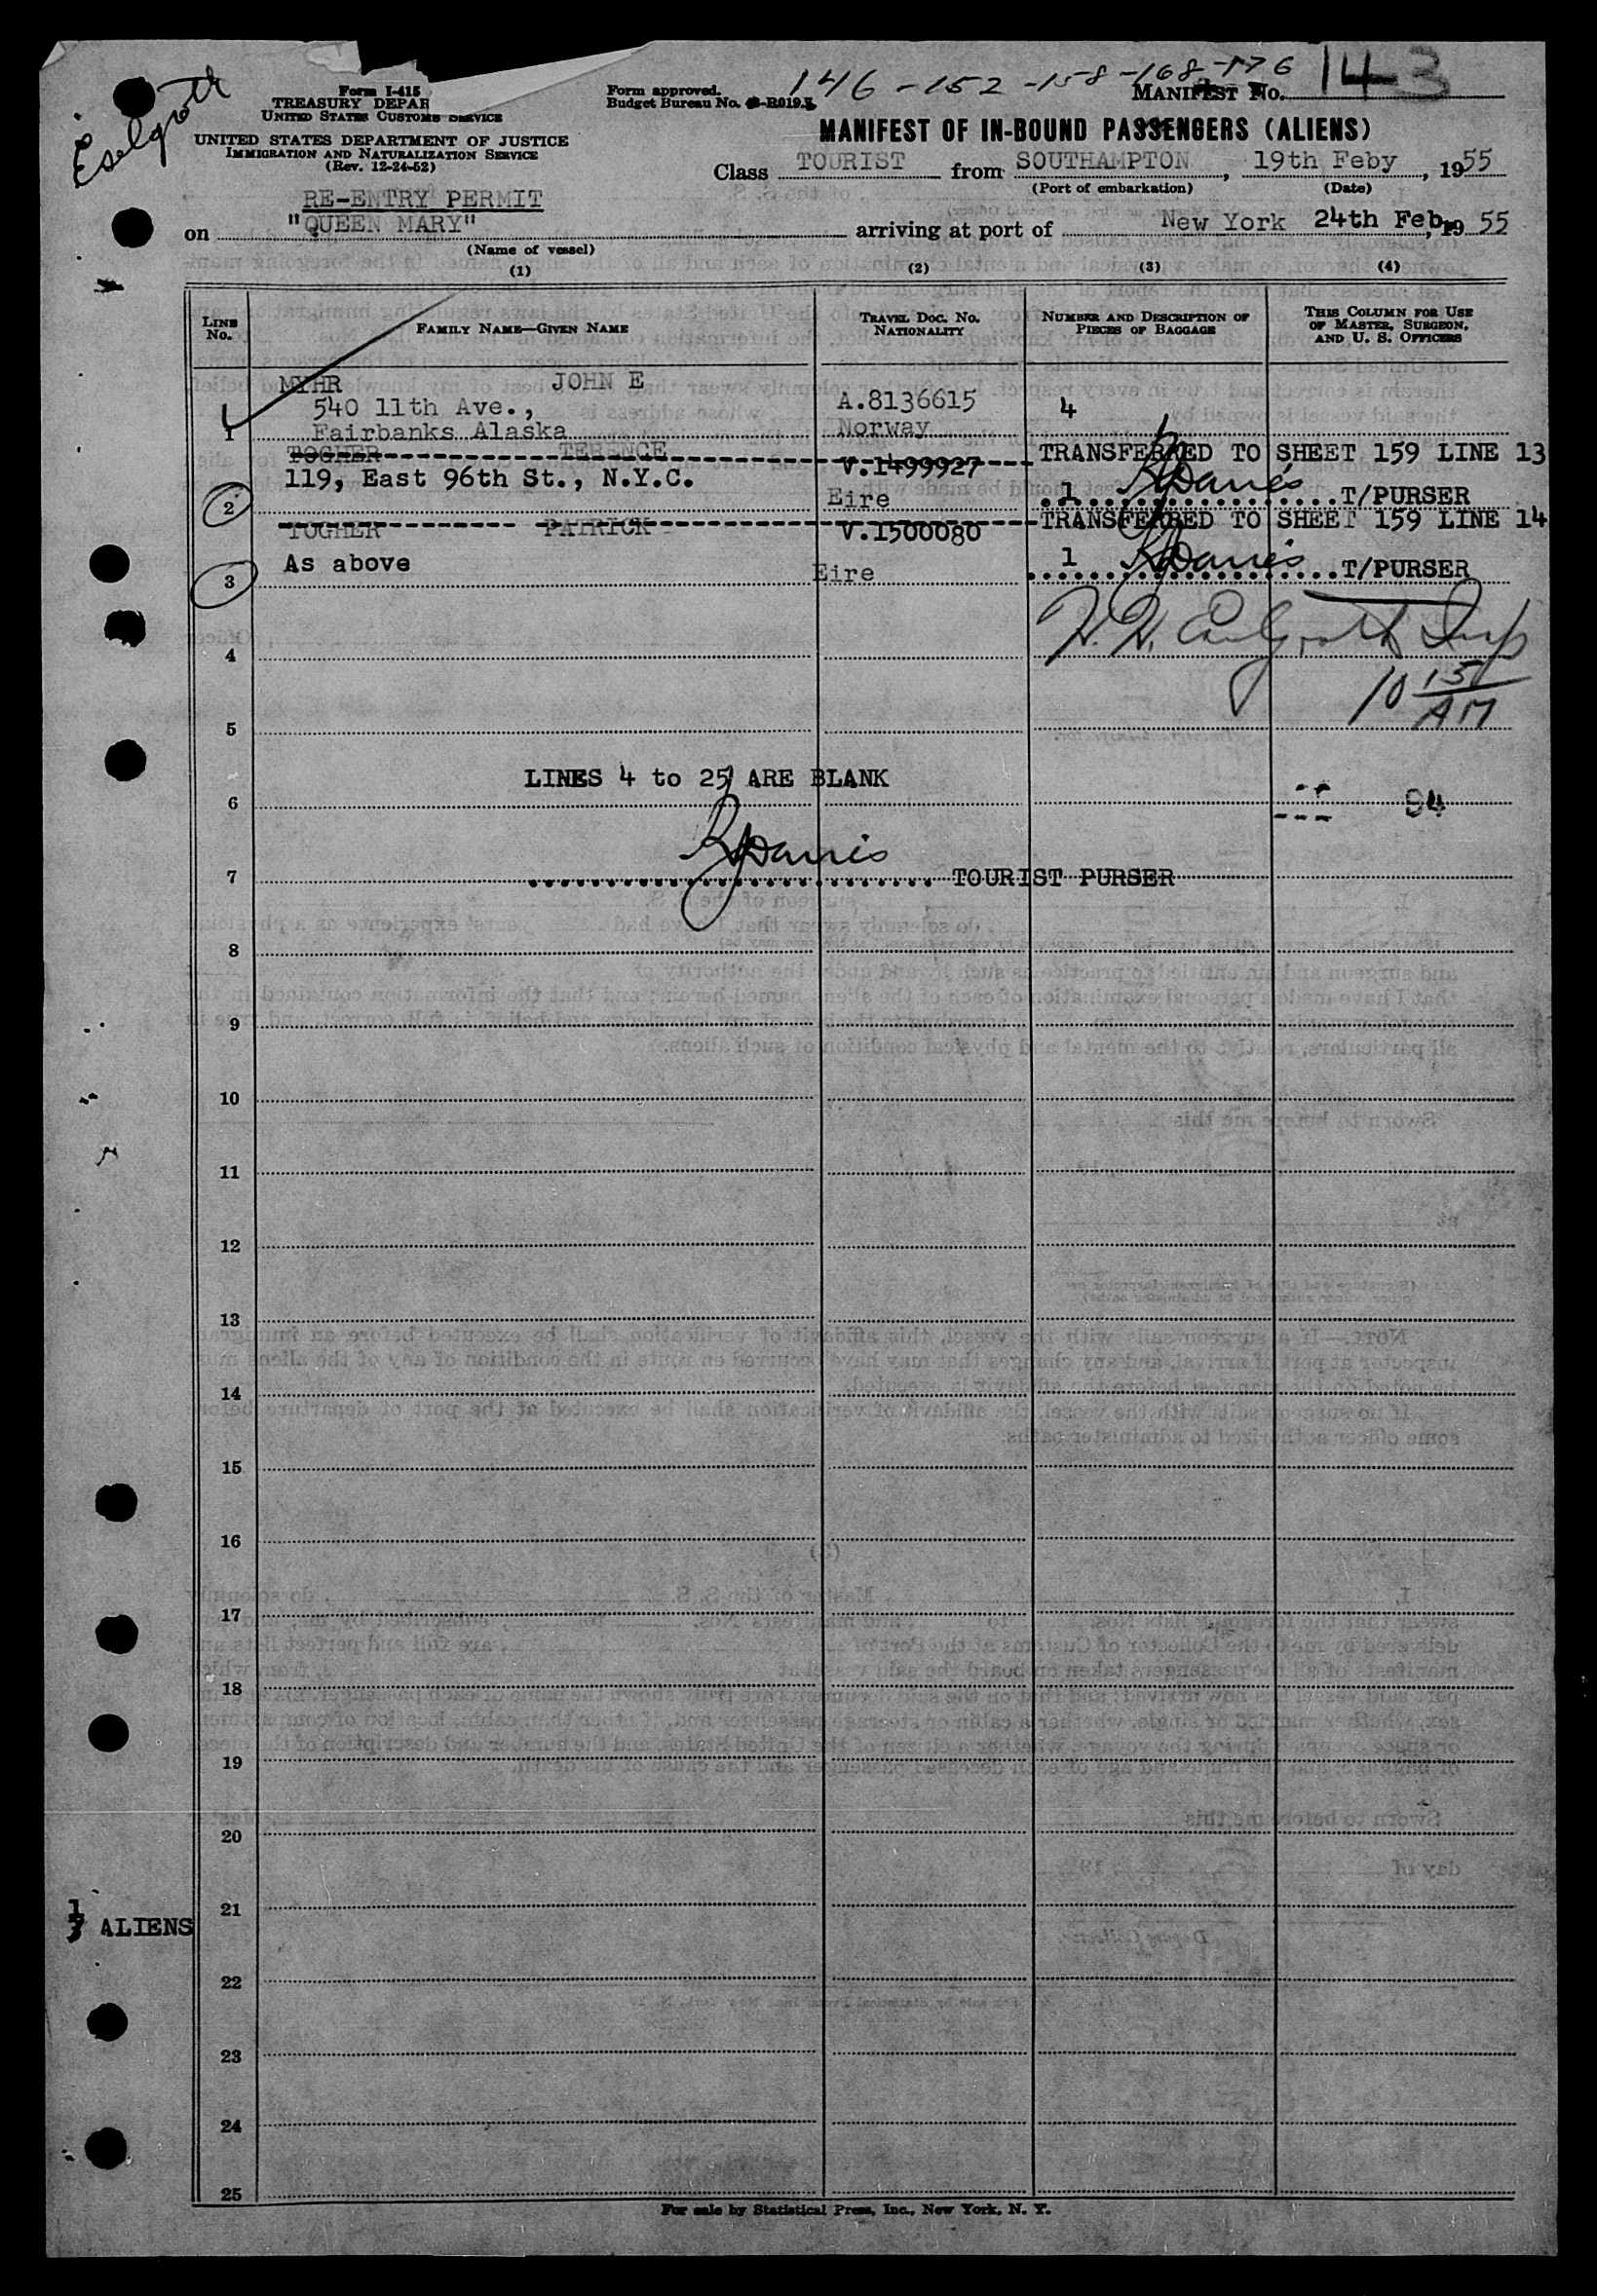 146-152-158-168-176
Form I-415
TREASURY DEPAR
UNITED STATES CUSTOMS SERVICE
UNITED STATES DEPARTMENT OF JUSTICE
IMMIGRATION AND NATURALIZATION SERVICE
(Rev. 12-24-52)
Form approved.
Budget Bureau No.
MANIFEST No. 143
MANIFEST OF IN-BOUND PASSENGERS (ALIENS)
Class TOURIST from SOUTHAMPTON, 19th Feby, 1955
(Port of embarkation) (Date)
RE-ENTRY PERMIT
on "QUEEN MARY" arriving at port of New York 24th Feb, 1955
(Name of vessel)
(1) (2) (3) (4)
LINE No. FAMILY NAME—GIVEN NAME TRAVEL DOC. No. NATIONALITY NUMBER AND DESCRIPTION OF PIECES OF BAGGAGE THIS COLUMN FOR USE OF MASTER, SURGEON, AND U. S. OFFICERS
MYHR JOHN E
540 11th Ave., A.8136615 4
1 Fairbanks Alaska Norway
TOGHER TERENCE V.1499927 TRANSFERRED TO SHEET 159 LINE 13
119, East 96th St., N.Y.C.
2 Eire 1 T/PURSER
TOGHER PATRICK V.1500080 TRANSFERRED TO SHEET 159 LINE 14
As above
3 Eire 1 T/PURSER
4
10 15 AM
5
LINES 4 to 25 ARE BLANK
6 94
7 TOURIST PURSER
8
9
10
11
12
13
14
15
16
17
18
19
20
21
1 ALIENS
22
23
24
25
For sale by Statistical Press, Inc., New York, N. Y.